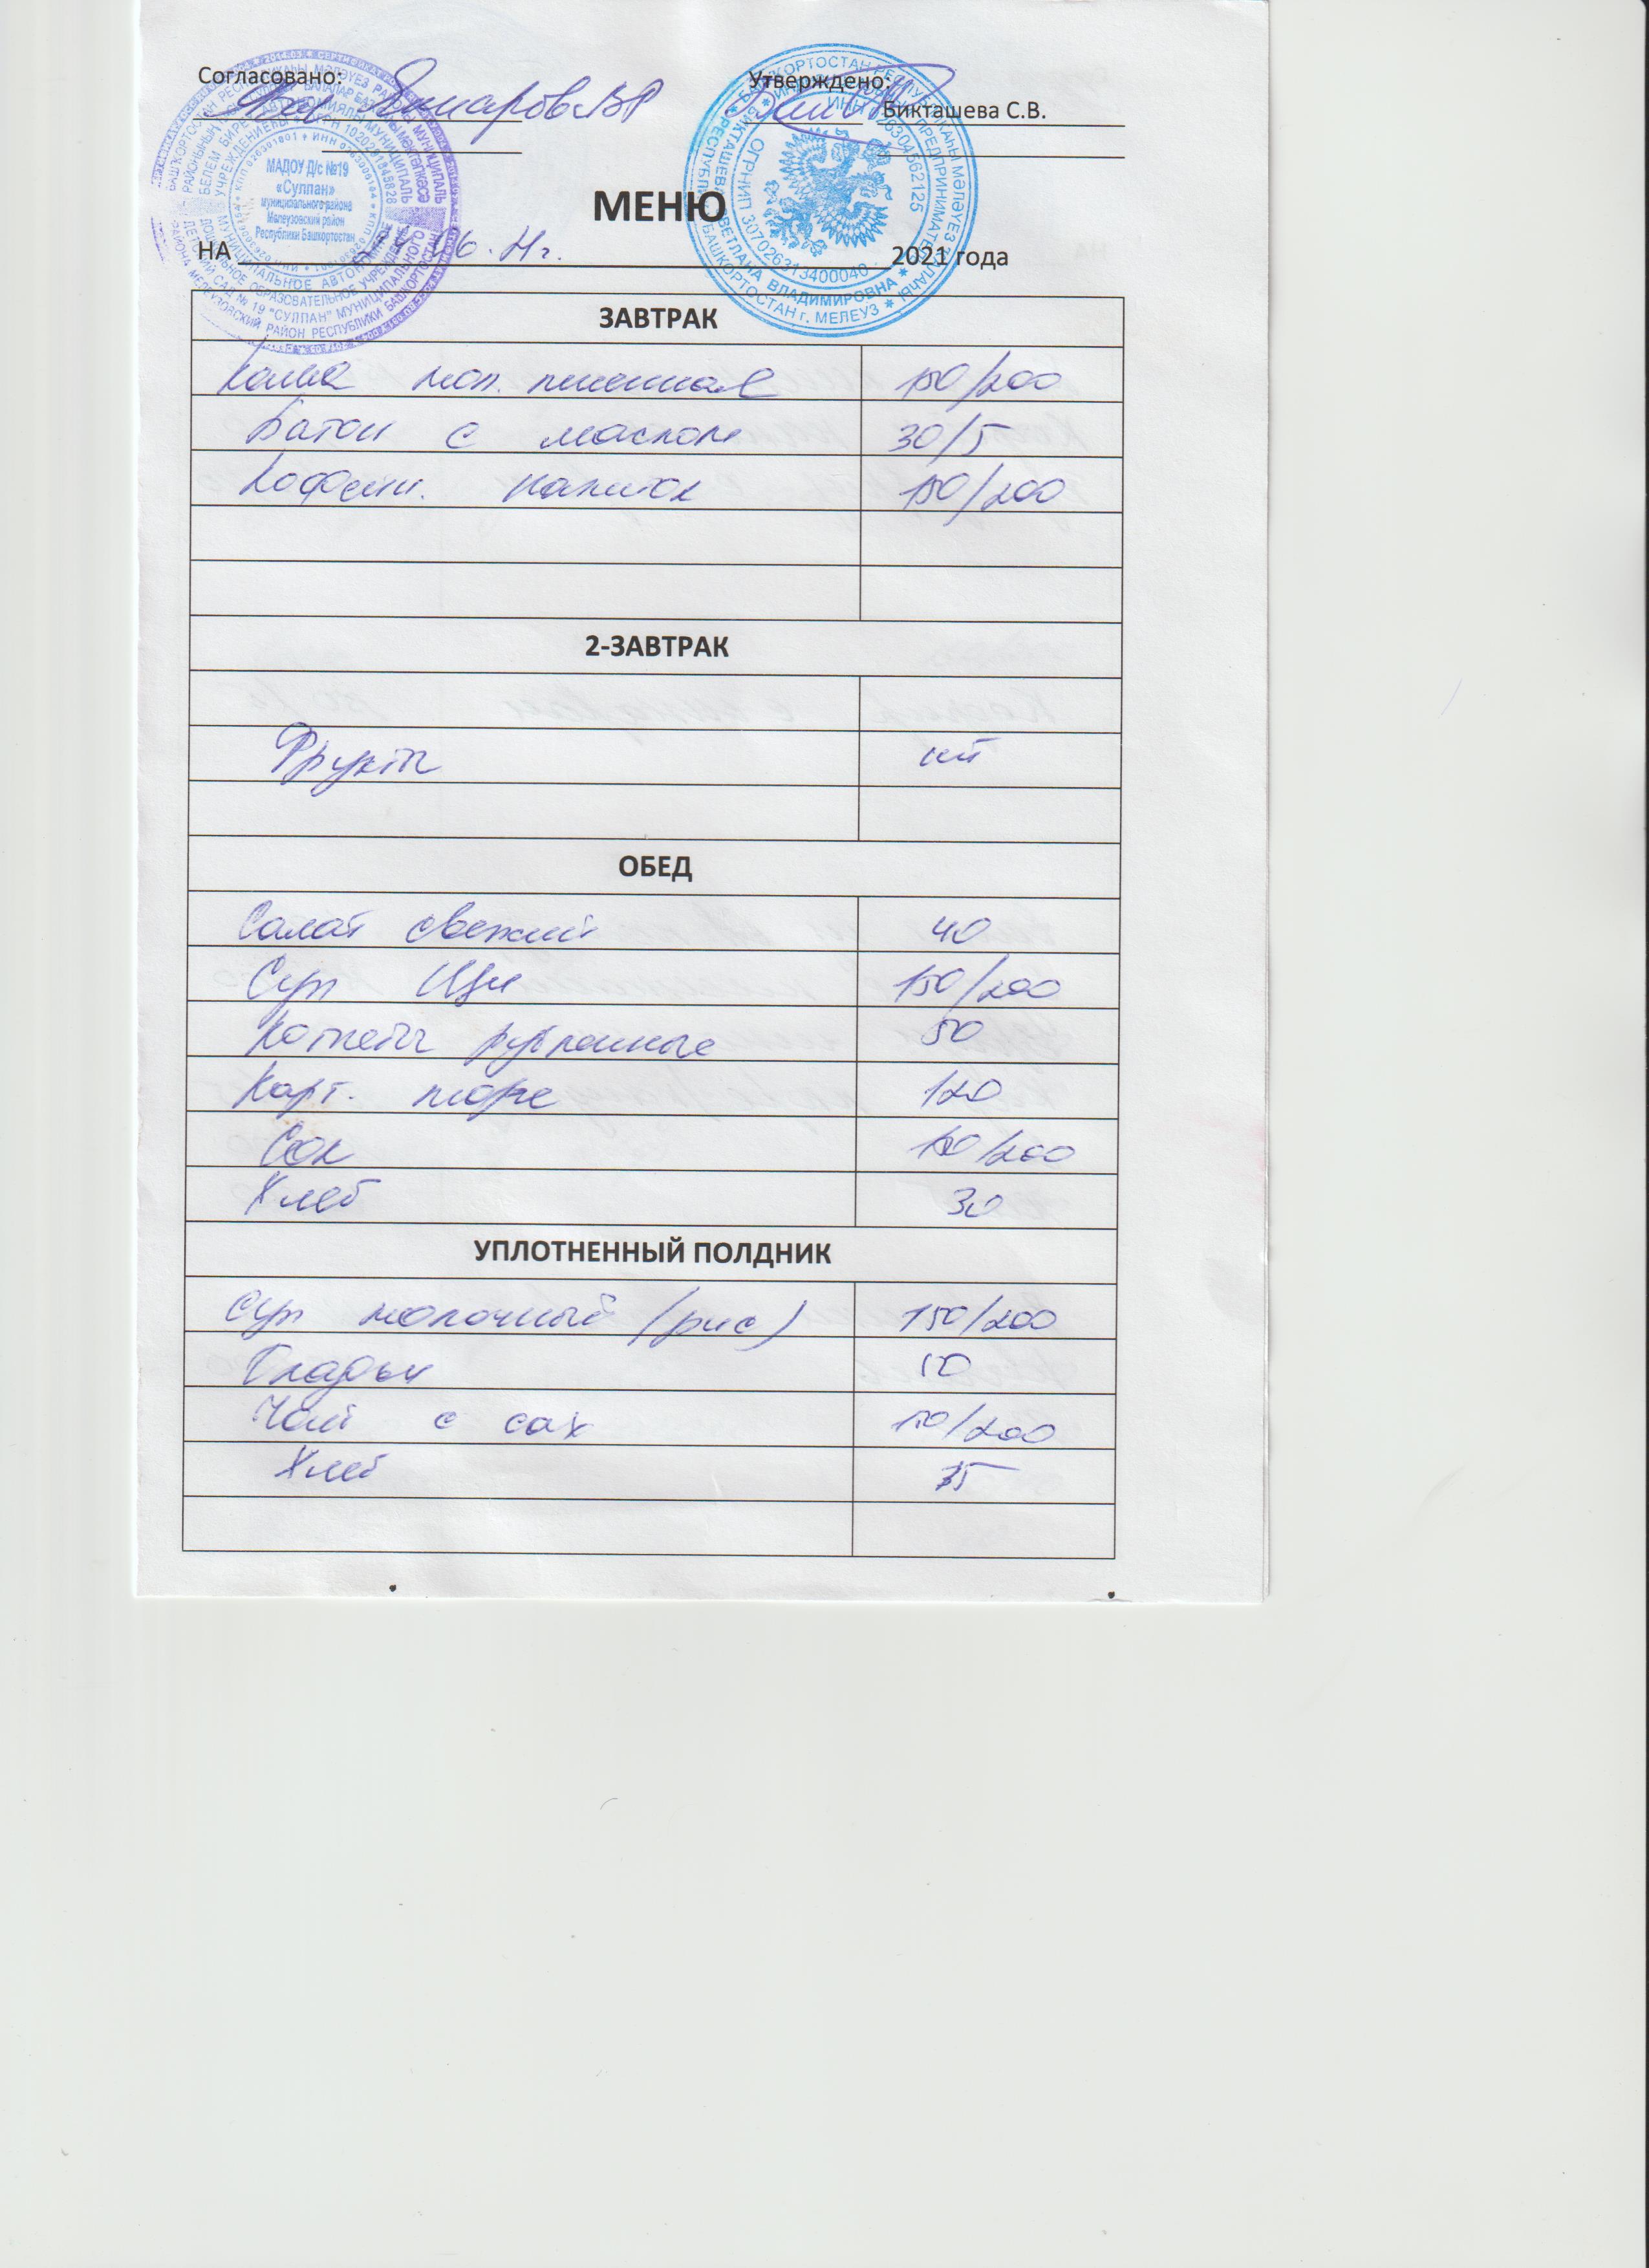 Согласовано:
Утверждено:
Бикташева С.В.
МАДОУ Д/с №19
«Сулпан»
муниципального района
Мелеузовский район
Республики Башкортостан
МЕНЮ
НА 2021 года
ЗАВТРАК
Каша мол. пшенная 150/200
Батон с маслом 30/5
Кофейн. напиток 150/200
2-ЗАВТРАК
Фрукты шт
ОБЕД
Салат свежий 40
Суп Щи 150/200
Котлеты рубленные 50
Карт. пюре 120
Сок /200
Хлеб 30
УПЛОТНЕННЫЙ ПОЛДНИК
Суп молочный (рис) 150/200
Оладьи
Чай с сах 150/200
Хлеб